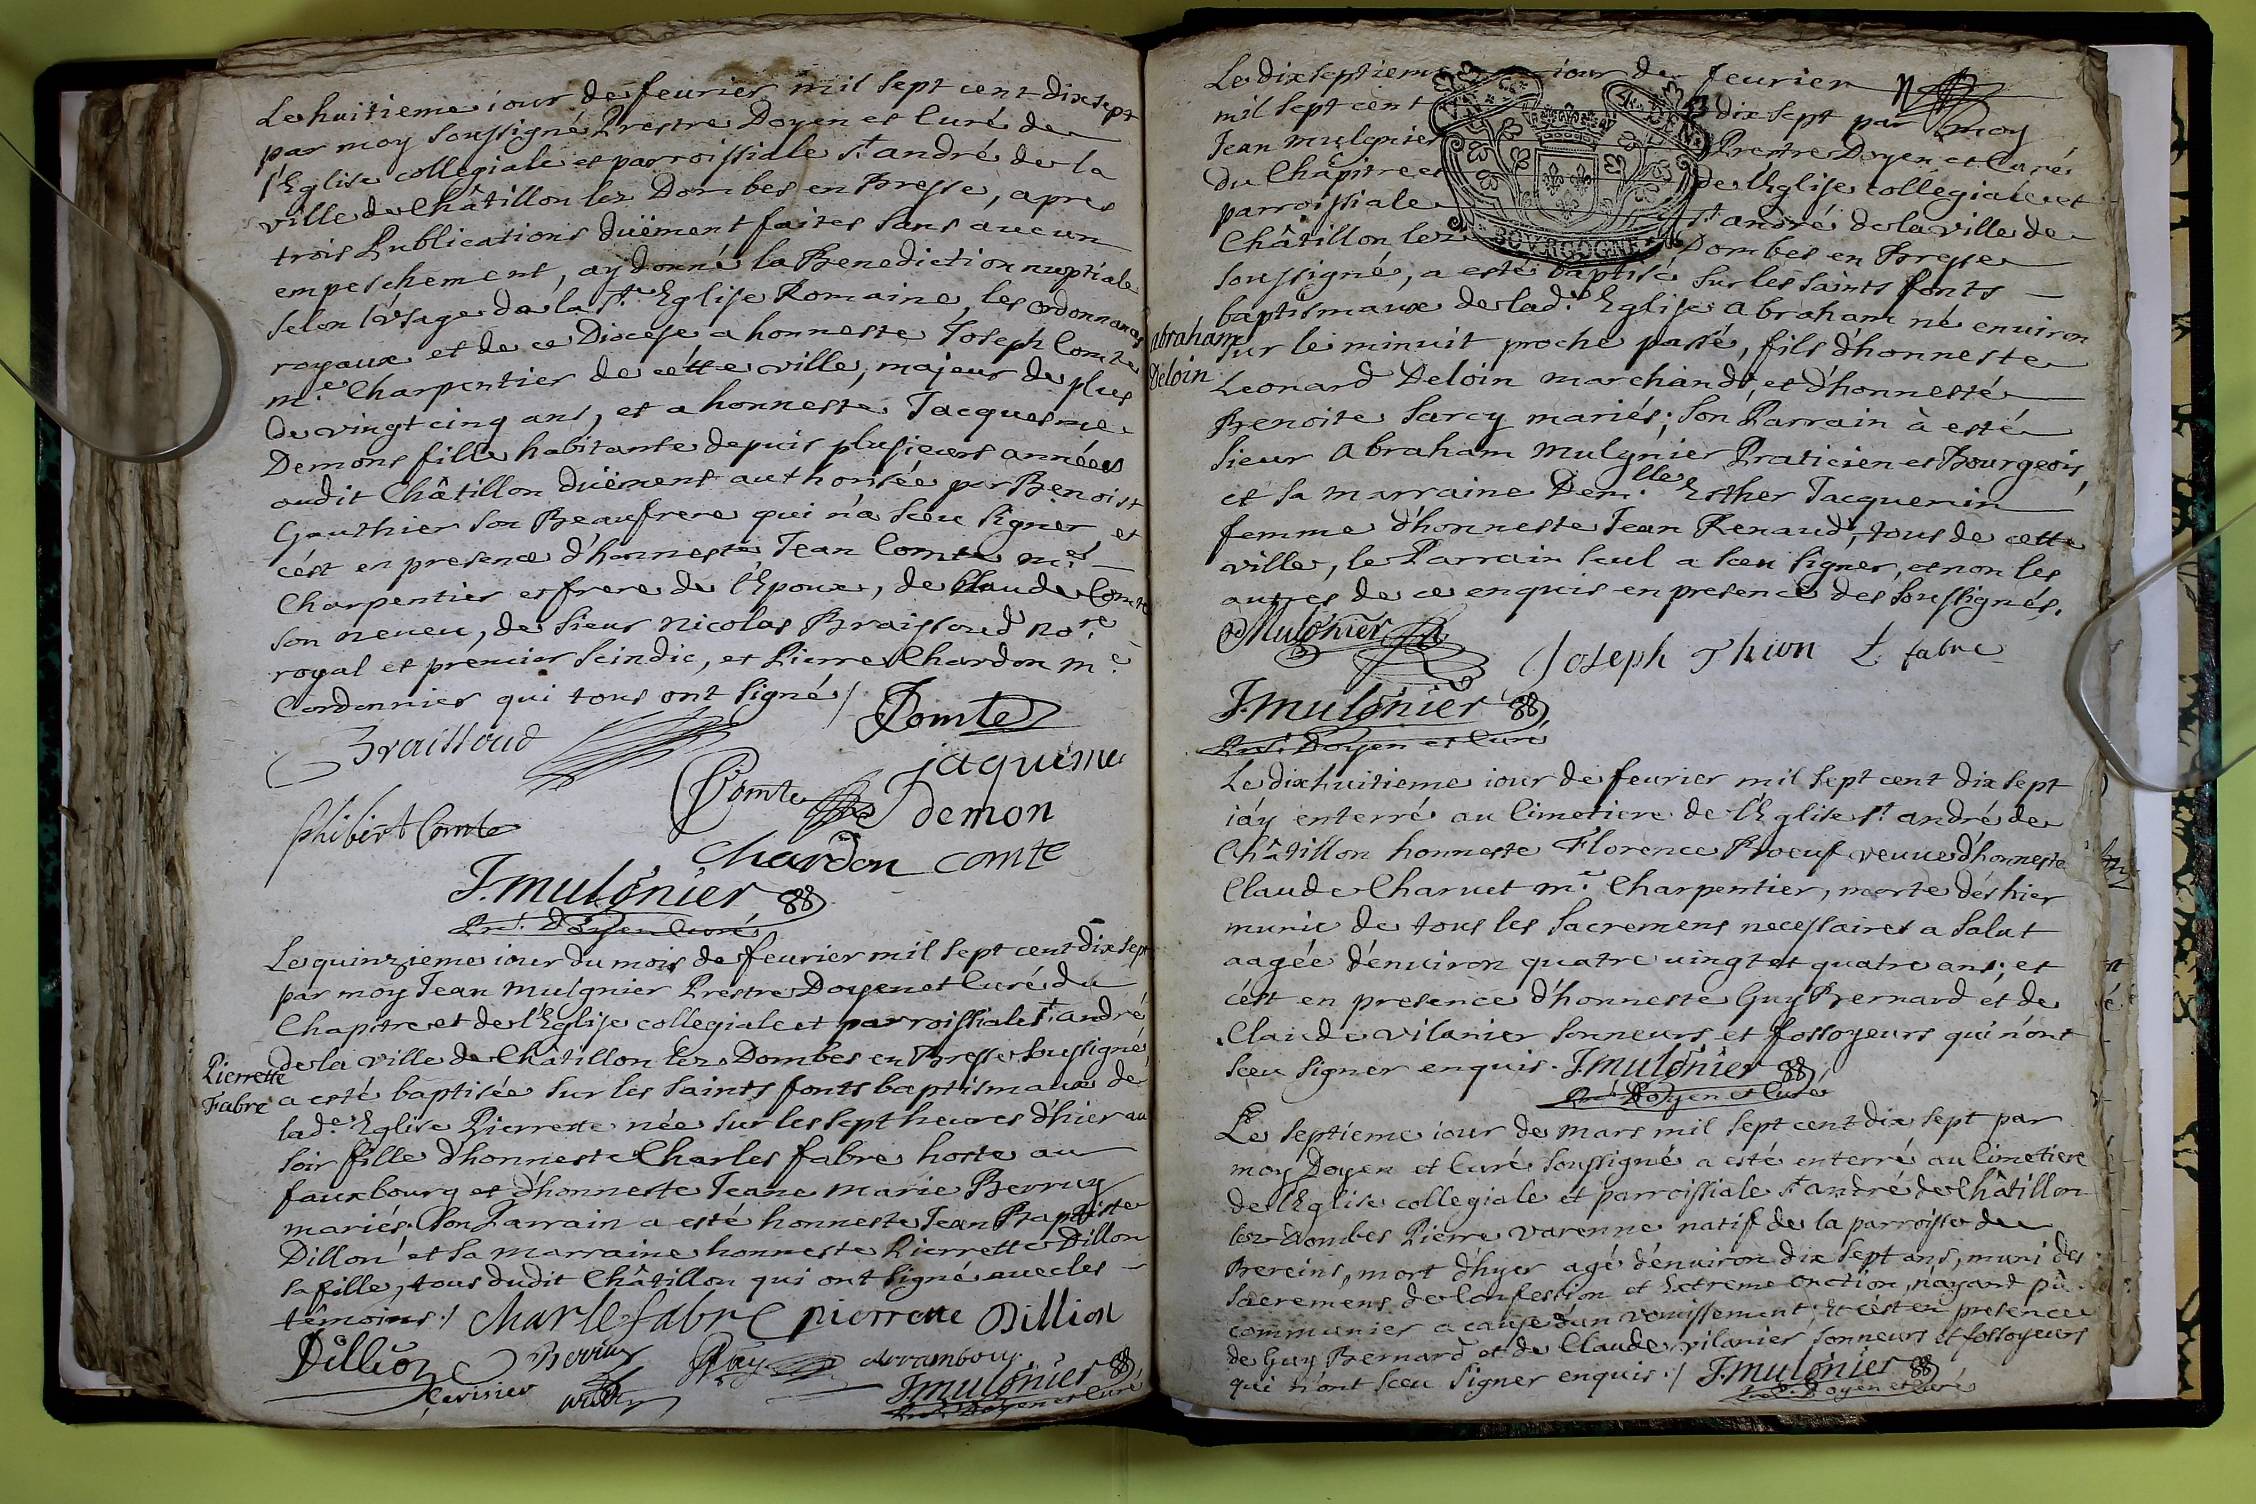 Le huitieme iour de feurier mil sept cent dix sept
par moy soussigné Prestre Doyen et Curé de
l'Eglise collegiale et parroissiale St. andré de la
ville de Châtillon lez Dombes en Bresse, apres
trois Publications düement faites sans aucun
empeschement, ay donné la Benediction nuptiale
selon l'vsage de la Ste. Eglise Romaine, les ordonnances
royaux et de ce Diocese a honneste Joseph Comte
me. Charpentier de cette ville, majeur de plus
de vingt cinq ans, et a honneste Jacquesme
Demons fille habitante depuis plusieurs années
audit Châtillon düement authorisée par Benoist
Gauthier son Beaufrere qui n'a sceu signer, et
c'est en presence d'honneste Jean Comte me.
Charpentier et frere de l'Epoux, de Claude Comte
son neueu, de sieur Nicolas Braissoud nore.
royal et premier scindic, et Pierre Chardon me.
Cordonnier qui tous ont signé /
Comte
Braissoud
jaquéme
Comte
demon
phibert Comte
chardon comte
J. mulgnier
Pre. Doyen Curé
Le quinzieme iour du mois de feurier mil sept cent dix sept
par moy Jean mulgnier Prestre Doyen et Curé du
Chapitre et de l'Eglise collegiale et parroissiale St. andré
de la ville de Châtillon lez Dombes en Bresse soussigné,
Pierrette
Fabre
a esté baptisée sur les saints fonts baptismaux de
lade. Eglise Pierrette née sur les sept heures d'hier au
soir fille d'honneste Charles fabre hoste au
fauxbourg et d'honneste Jeane Marie Berruy
mariés. Son Parrain a esté honneste Jean Baptiste
Dillon et sa marraine honneste Pierrette Dillon
sa fille, tous dudit Châtillon qui ont signé auec les
témoins. / charle fabre pierrette Dillion
Dillion
J. mulgnier
Pre. Doyen et Curé
Le dixseptieme iour de feurier
mil sept cent dix sept par moy
Jean mulgnier Prestre Doyen et Curé
du Châpitre et de l'Eglise collégiale et
parroissiale St. andré de la ville de
Châtillon lez Dombes en Bresse
BOVRGOGNE
soussigné, a esté baptisé sur les saints fonts
baptismaux de lade. Eglise Abraham né enuiron
abraham
Deloin
sur le minuit proche passé, fils d'honneste
Leonard Deloin marchand, et d'honnesté
Benoite Sarcy mariés; son Parrain à esté
sieur Abraham Mulgnier Praticien et Bourgeois,
et sa marraine Demlle. Esther Jacquemin
femme d'honneste Jean Renaud, tous de cette
ville, le Parrain seul a sceu signer, et non les
autres de ce enquis en presence des soussignés.
Mulgnier
Joseph Thion
L. fabre
J. mulgnier
Pre. Doyen et Curé
Le dixhuitieme iour de feurier mil sept cent dix sept
i'ay enterré au Cimetiere de l'Eglise St. andré de
Châtillon honneste Florence Boeuf veuue d'honneste
Claude Charuet me. Charpentier, morte dés hier
munie de tous les sacremens necessaires a salut
aagée d'enuiron quatre uingt et quatre ans; et
c'est en presence d'honneste Guy Bernard et de
Claude vilanier sonneurs et fossoyeurs qui n'ont
sceu signer enquis. J. mulgnier
Pre. Doyen et Curé
Le septieme iour de mars mil sept cent dix sept par
moy Doyen et Curé soussigné a esté enterré au Cimetiere
de l'Eglise collegiale et parroissiale St. andré de Châtillon
lez Dombes Pierre varenne natif de la parroisse de
Bereins, mort d'hyer agé d'enuiron dix sept ans, muni des
sacremens de Confession et Extreme onction, n'ayant pû
communier a cause d'un vomissement; Et c'est en presence
de Guy Bernard et de Claude vilanier sonneurs et fossoyeurs
qui n'ont sceu signer enquis. / J. mulgnier
Pre. Doyen et Curé